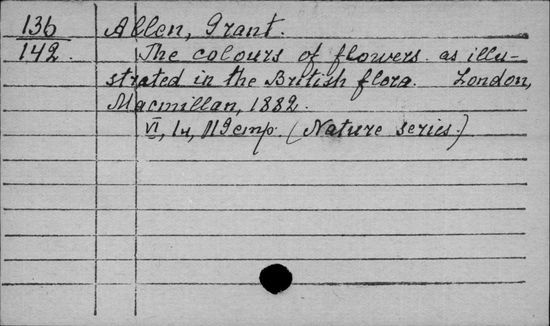 136
142.
Allen, Grant.
The colours of flowers as illu-
strated in the British flora. London,
Macmillan, 1882.
VI, 1 u, 119 cmp. (Nature series.)